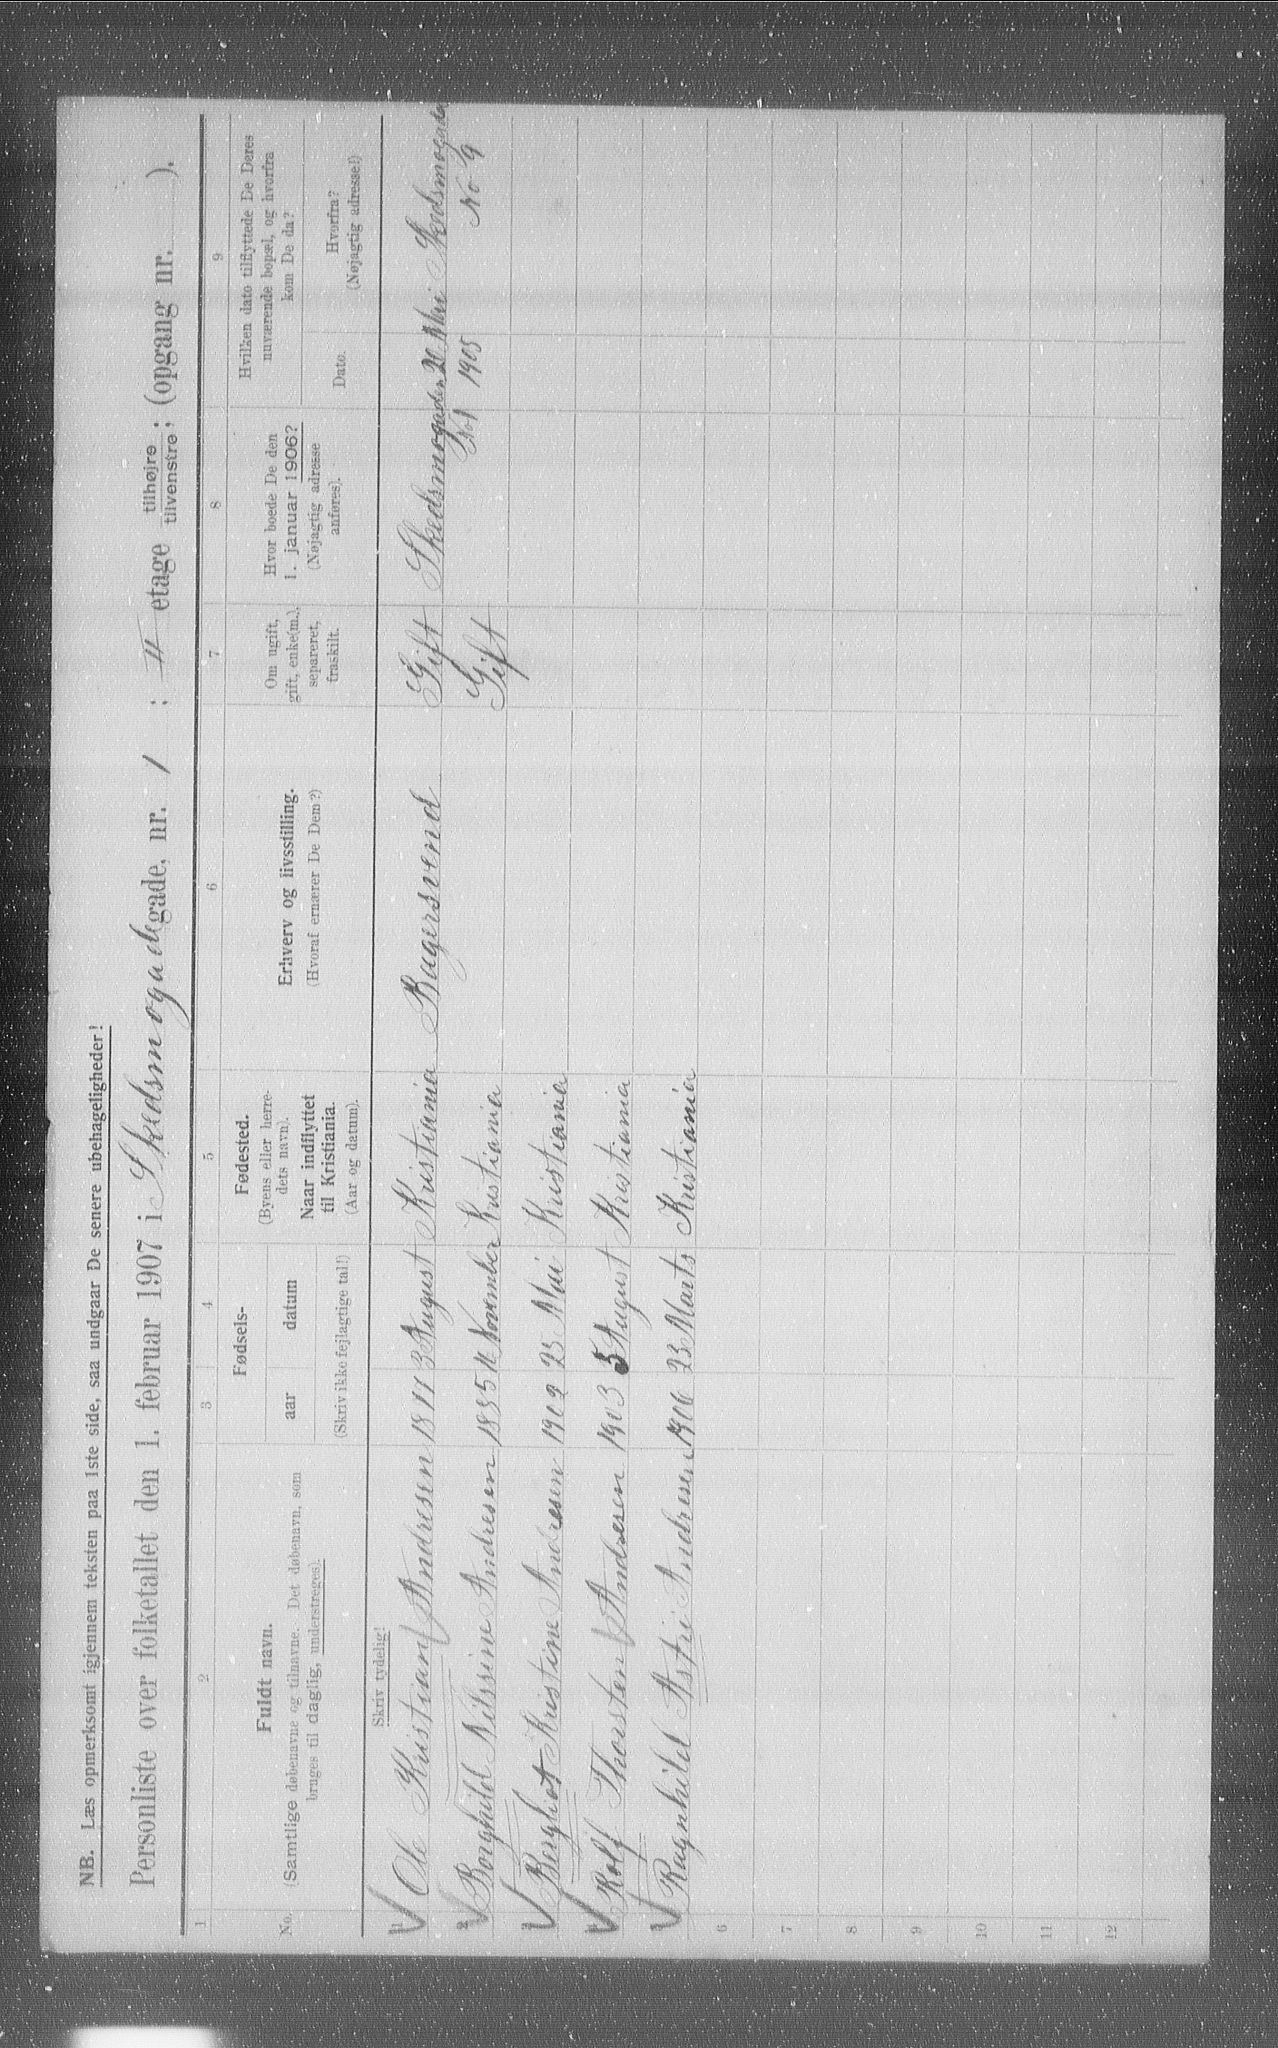 NB. Læs opmerksomt igjennem teksten paa 1ste side, saa undgaar De senere ubehageligheder!
Personliste over folketallet den 1. februar 1907 i Skedsmogade gade, nr. 1 ; II etage tilhøjre tilvenstre; (opgang nr. ).
1 2 3 4 5 6 7 8 9
No. Fuldt navn. (Samtlige døbenavne og tilnavne. Det døbenavn, som bruges til daglig, understreges).
Fødsels-
aar datum
(Skriv ikke fejlagtige tal!)
Fødested. (Byens eller herredets navn). Naar indflyttet til Kristiania. (Aar og datum).
Erhverv og livsstilling. (Hvoraf ernærer De Dem?)
Om ugift, gift, enke(m.), separeret, fraskilt.
Hvor boede De den 1. januar 1906? (Nøjagtig adresse anføres).
Hvilken dato tilflyttede De Deres nuværende bopæl, og hvorfra kom De da?
Dato. Hvorfra? (Nøjagtig adresse!)
Skriv tydelig!
1 Ole Kristian Andresen 18 3 August Kristiania Bagersvend Gift Skedsmogaden No 1 20 Mai 1905 Skedsmogada No 9
2 Borghild Nilssine Andresen 1885 November Kristiania Gift
3 Berghot Kristine Andresen 1902 23 Mai Kristiania
4 Rolf Thorsten Andresen 1903 5 August Kristiania
5 Ragnhild Astri Andresen 1906 23 Marts Kristiania
6
7
8
9
10
11
12